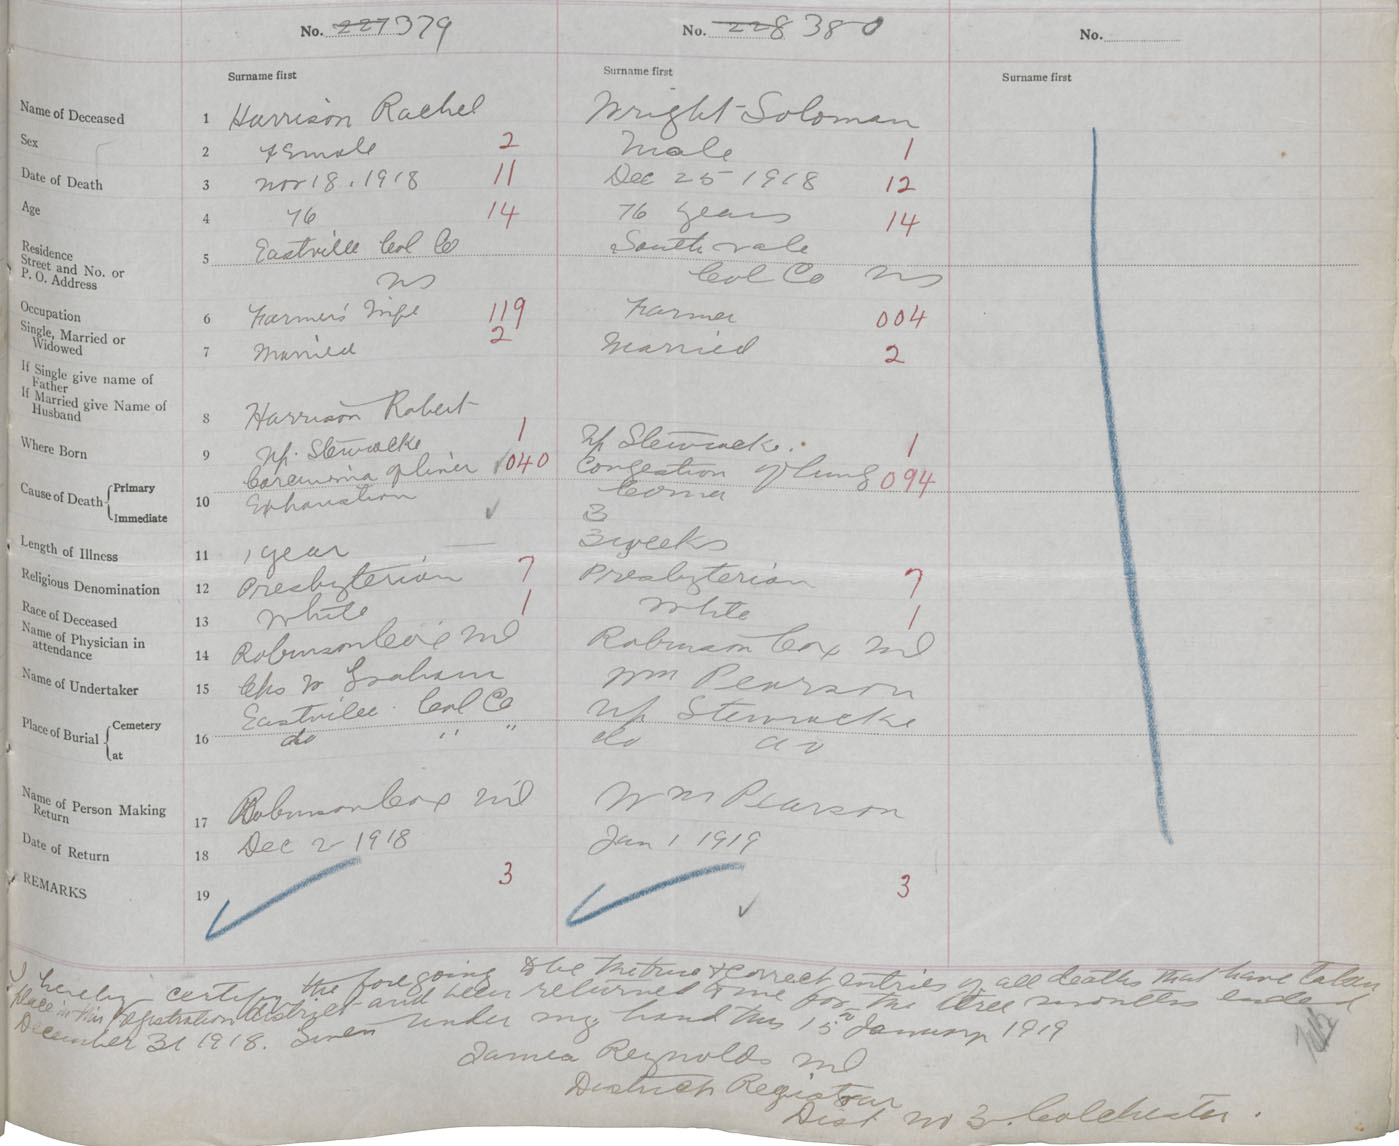 No. 227 379
No. 228 380
No.
Surname first
Surname first
Surname first
Name of Deceased 1 Harrison Rachel Wright Soloman
Sex 2 Female 2 Male 1
Date of Death 3 Nov 18. 1918 11 Dec 25 1918 12
Age 4 76 14 76 years 14
Residence
Street and No. or
P. O. Address
5 Eastville Col Co Southvale
NS Col Co NS
Occupation 6 Farmer's Wife 119 Farmer 004
Single, Married or
Widowed
7 Married 2 Married 2
If Single give name of
Father
If Married give Name of
Husband
8 Harrison Robert
Where Born 9 Up. Stewiacke 1 Up Stewiacke. 1
Cause of Death Primary Carcinoma of liver 040 Congestion of lung 094
Immediate 10 Exhaustion Coma
3
Length of Illness 11 1 year 3 weeks
Religious Denomination 12 Presbyterian 7 Presbyterian 7
Race of Deceased 13 White 1 White 1
Name of Physician in
attendance
14 Robinson Cox MD Robinson Cox MD
Name of Undertaker 15 Chs W Graham Wm Pearson
Place of Burial Cemetery Eastville Col Co Up Stewiacke
at 16 do " " do do
Name of Person Making
Return
17 Robinson Cox MD Wm Pearson
Date of Return 18 Dec 2 1918 Jan 1 1919
REMARKS 19 3 3
I hereby certify the foregoing to be the true & correct entries of all deaths that have taken
place in this Registration District and been returned to me for the three months ended
December 31 1918. Given under my hand this 15th January 1919
James Reynolds MD
District Registrar
Dist no 3 Colchester.